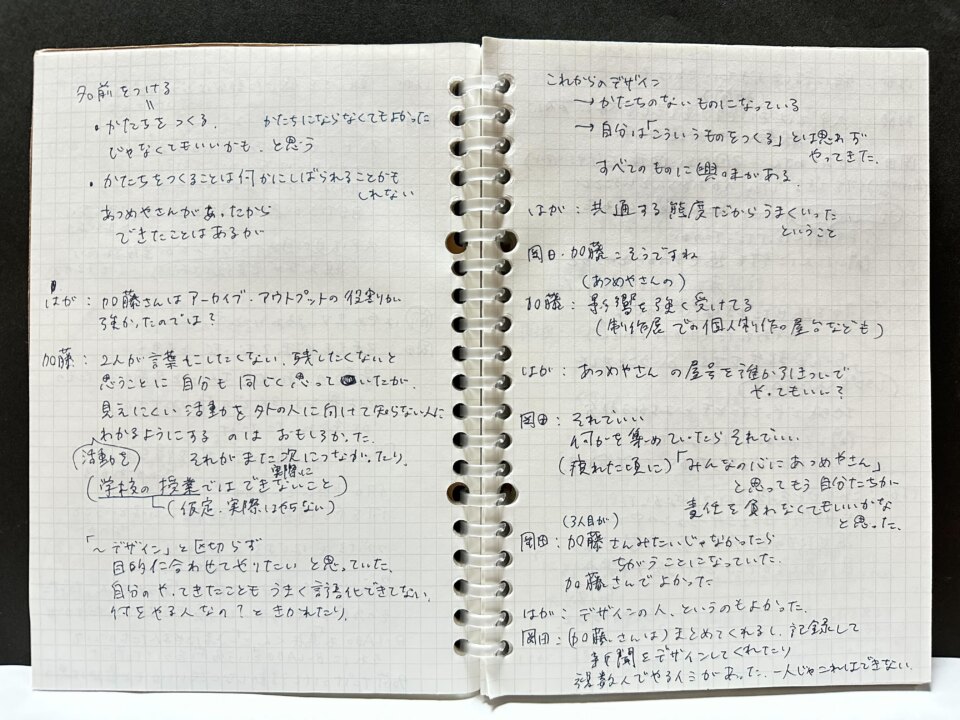 名前をつける
＝
・かたちをつくる.　かたちにならなくてもよかった
じゃなくてもいいかも. と思う
・かたちをつくることは何かにしばられることかも
しれない
あつめやさんがあったから
できたことはあるが
はが：加藤さんはアーカイブ・アウトプットの役割りが
強かったのでは？
加藤：2人が言葉にしたくない、残したくないと
思うことに 自分も 同じく思っていたが、
見えにくい活動を外の人に向けて知らない人に
わかるようにする のは おもしろかった.
(活動を)　それがまた次につながったり.
実際に
(学校の授業ではできないこと)
(仮定. 実際はやらない)
「〜デザイン」と区切らず
目的に合わせてやりたい と思っていた.
自分のやってきたことも うまく言語化できてない.
何をやる人なの？ときかれたり.
これからのデザイン
→ かたちのないものになっている
→ 自分は「こういうものをつくる」とは思わず
やってきた.
すべてのものに興味がある.
はが：共通する態度だからうまくいった
ということ
岡田・加藤：そうですね
(あつめやさんの)
加藤：影響を強く受けてる
(制作展での個人制作の屋台なども)
はが：あつめやさん の屋号を誰か引きついで
やってもいい？
岡田：それでいい
何かを集めていたらそれでいい
(疲れた頃に)「みんなの心にあつめやさん」
と思ってもう 自分たちが
責任を負わなくてもいいかな
と思った.
(3人目が)
岡田：加藤さんみたいじゃなかったら
ちがうことになっていた.
加藤さんでよかった
はが：デザインの人、というのもよかった.
岡田：(加藤さんは)まとめてくれるし、記録して
新聞をデザインしてくれたり
複数人でやるイミがあった. 一人じゃこれはできない.